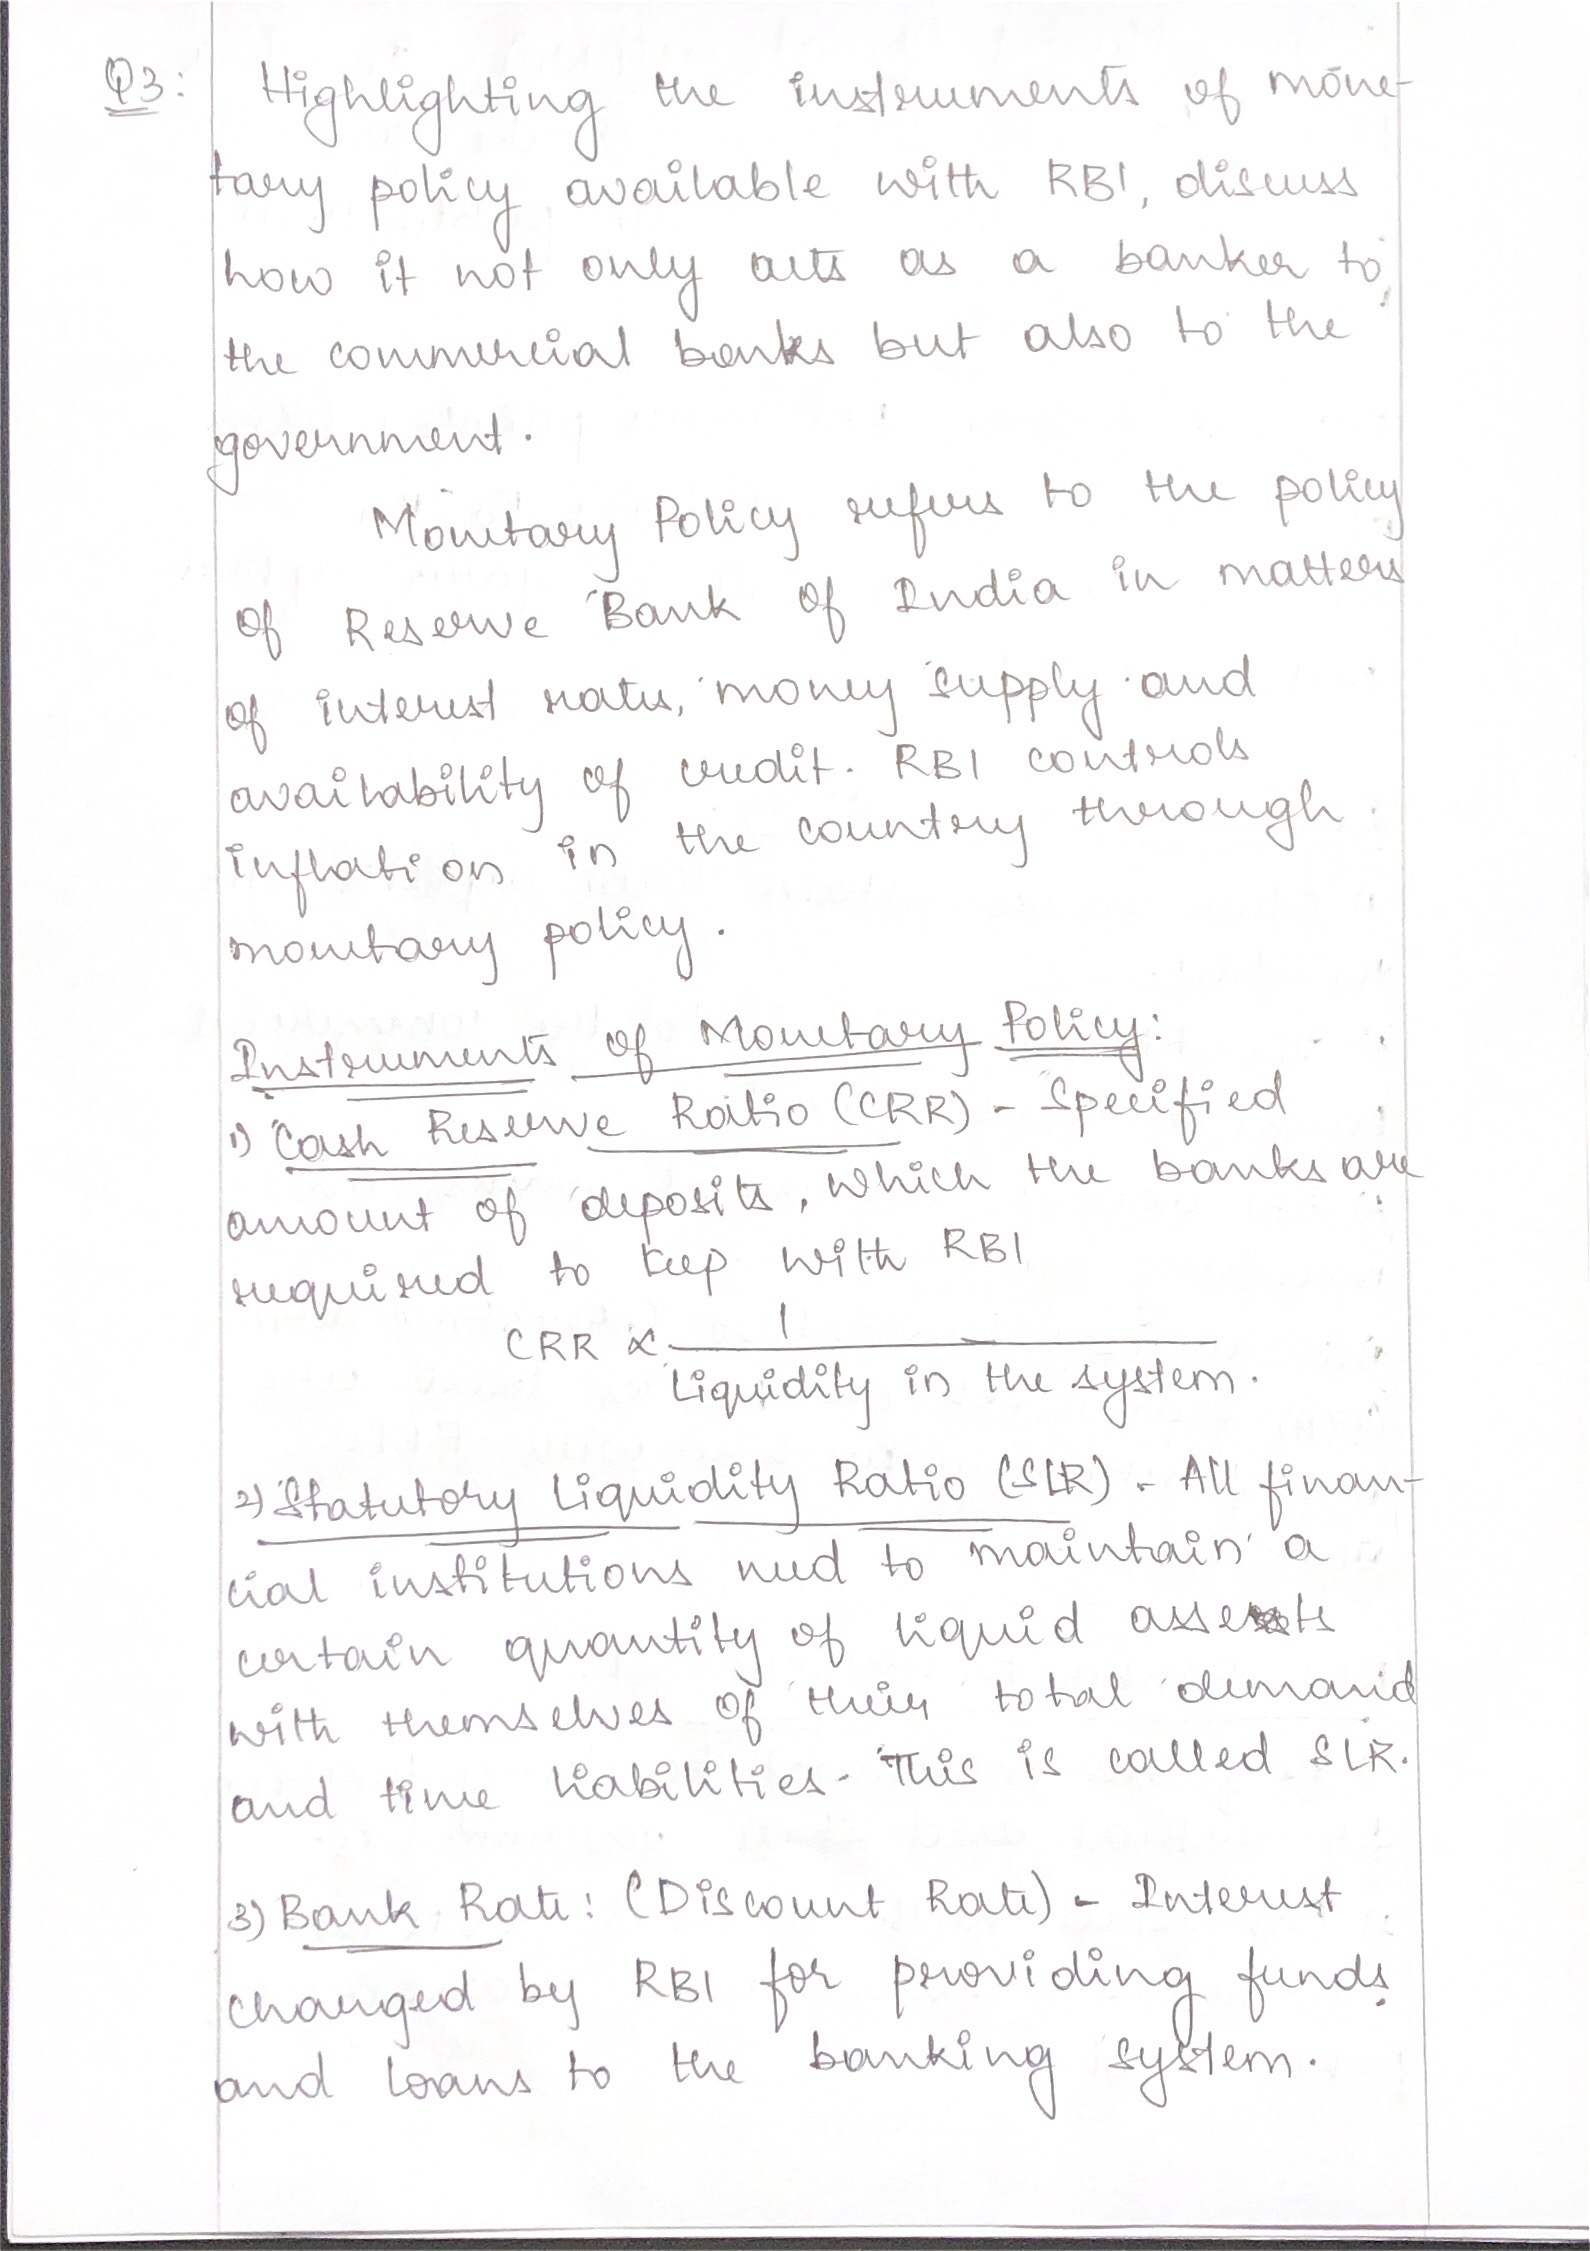 Q3: Highlighting the instruments of mone-
tary policy available with RBI, discuss
how it not only acts as a banker to
the commercial banks but also to the
government.
Monetary Policy refers to the policy
of Reserve Bank of India in matters
of interest rates, money supply and
availability of credit. RBI controls
inflation in the country through
monetary policy.
Instruments of Monetary Policy:
1) Cash Reserve Ratio (CRR) - Specified
amount of deposits, which the banks are
required to keep with RBI
CRR ∝ 1
Liquidity in the system.
2) Statutory Liquidity Ratio (SLR) - All finan-
cial institutions need to maintain a
certain quantity of liquid assets
with themselves of their total demand
and time liabilities. This is called SLR.
3) Bank Rate: (Discount Rate) - Interest
charged by RBI for providing funds
and loans to the banking system.